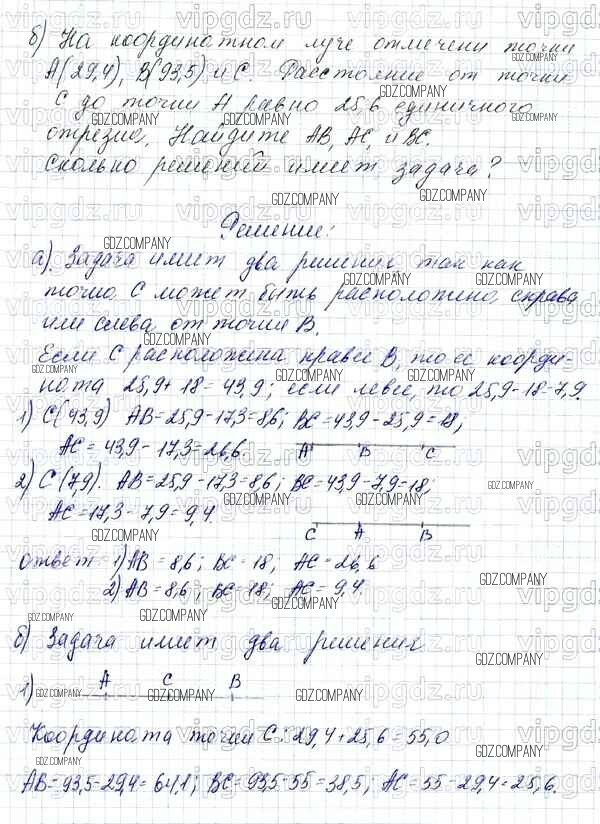 б) На координатном луче отмечены точки
А(29,4), В(93,5) и С. Расстояние от точки
С до точки А равно 25,6 единичного
отрезка. Найдите АВ, АС, и ВС.
Сколько решений имеет задача?
Решение:
а). Задача имеет два решения, так как
точка С может быть расположена справа
или слева от точки В.
Если С расположена правее В, то ее коорди-
ната 25,9 + 18 = 43,9; если левее, то 25,9 - 18 = 7,9.
1) С(43,9) АВ = 25,9 - 17,3 = 8,6; ВС = 43,9 - 25,9 = 18;
АС = 43,9 - 17,3 = 26,6.
А В С
2) С(7,9). АВ = 25,9 - 17,3 = 8,6; ВС = 43,9 - 7,9 = 18;
АС = 17,3 - 7,9 = 9,4.
С А В
ответ 1) АВ = 8,6; ВС = 18, АС = 26,6
2) АВ = 8,6; ВС = 18; АС = 9,4.
б) Задача имеет два решения
1) А С В
Координата точки С: 29,4 + 25,6 = 55,0
АВ = 93,5 - 29,4 = 64,1; ВС = 93,5 - 55 = 38,5; АС = 55 - 29,4 = 25,6.
vipgdz.ru
GDZ.COMPANY